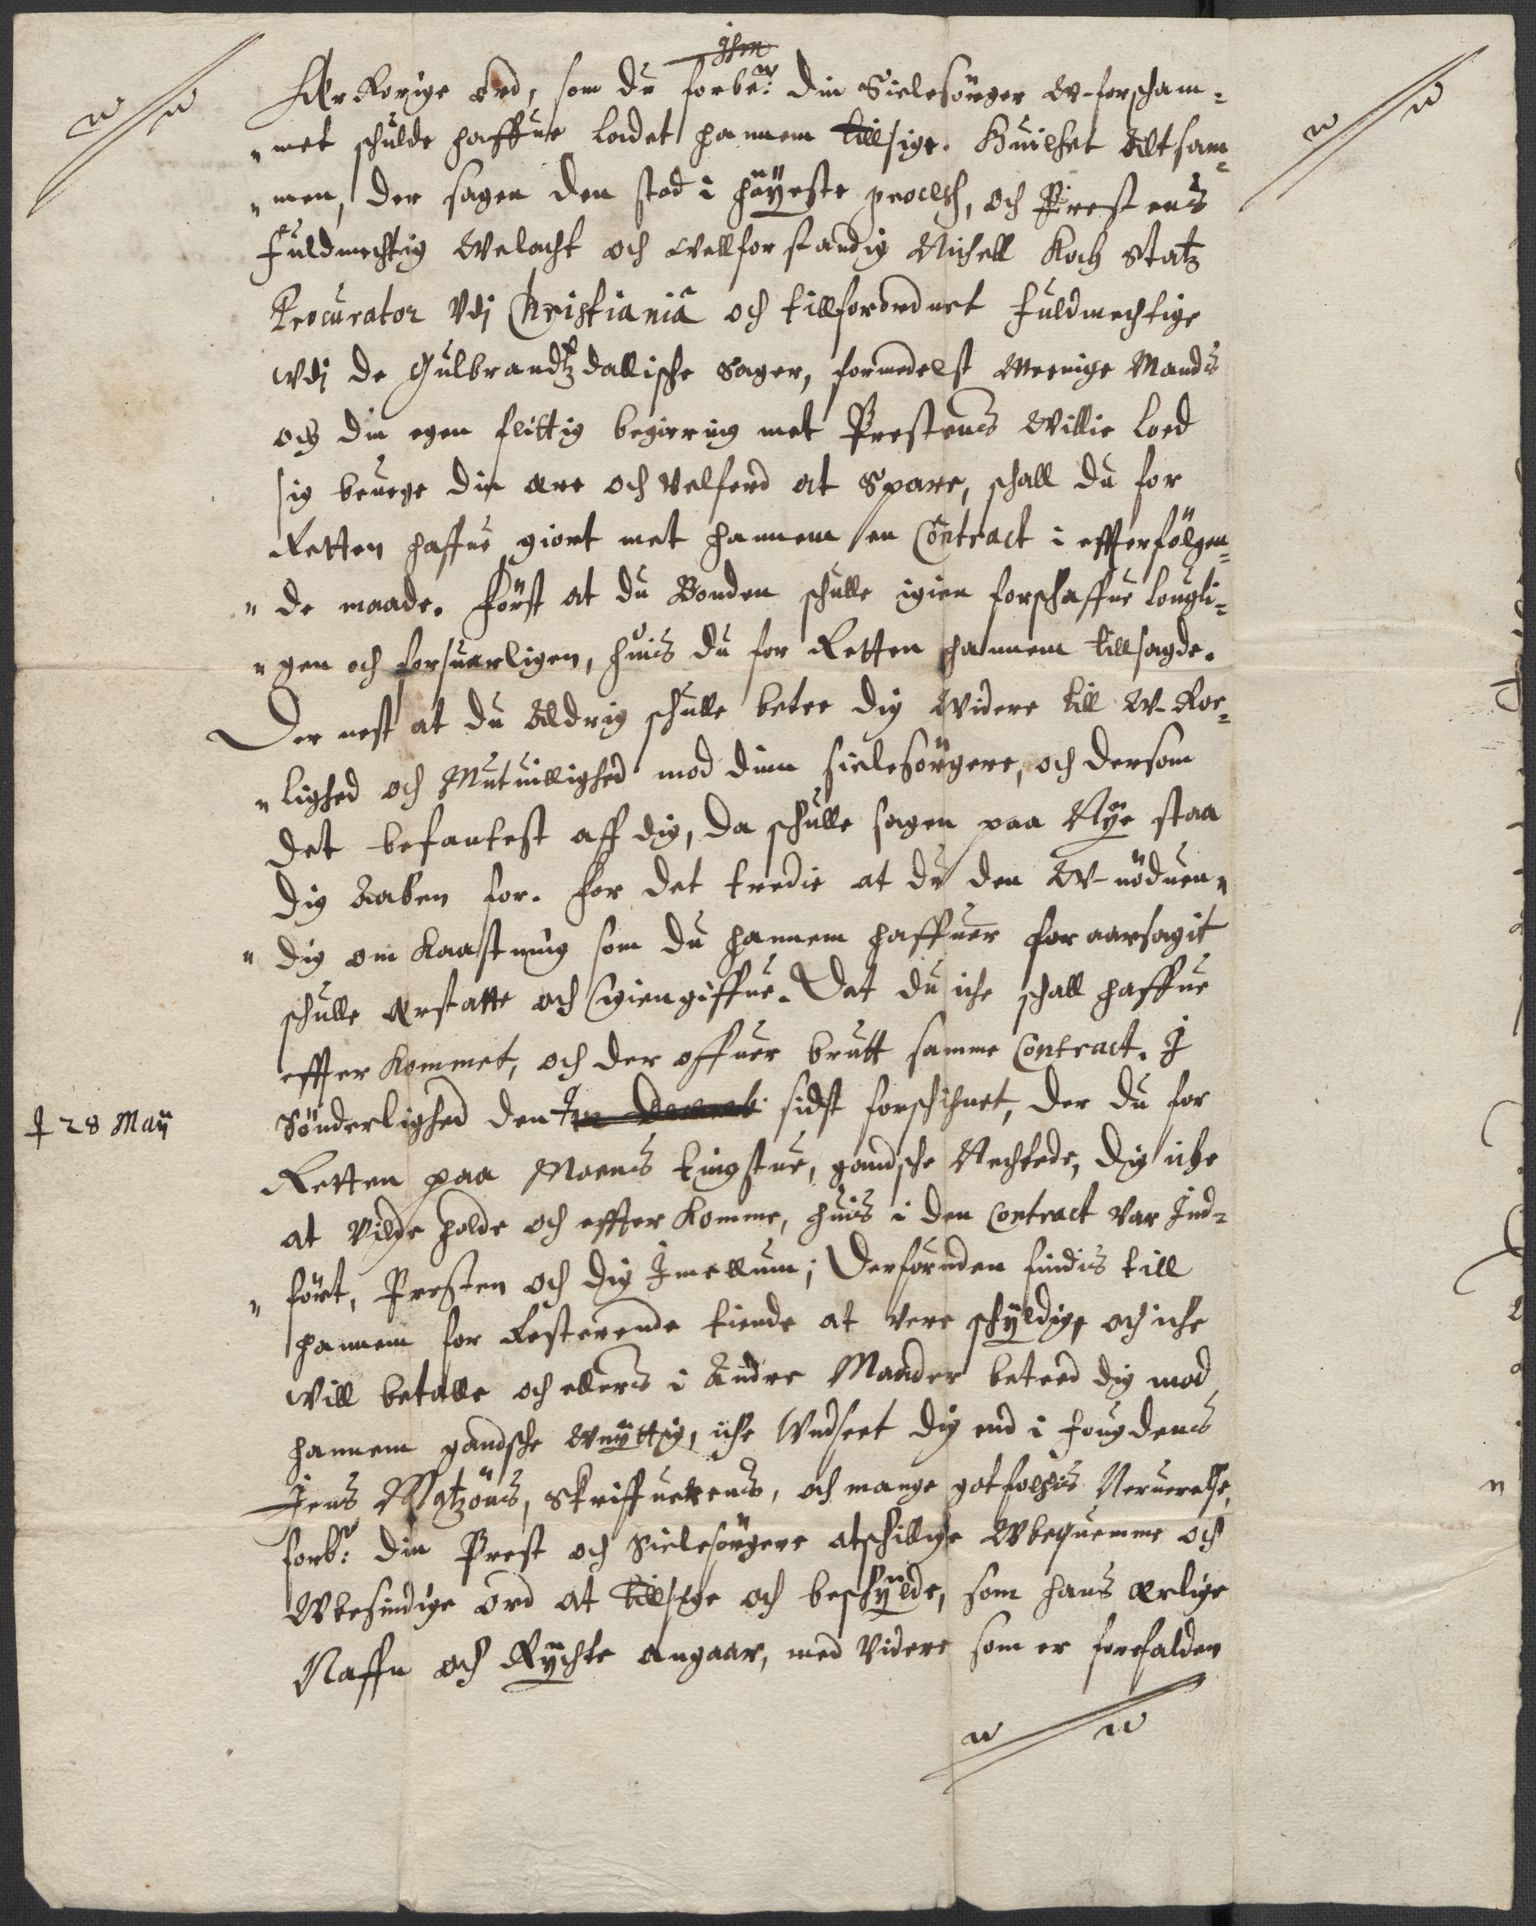 ærRorige ord, som du forbe:te din Sielesörger W-forscham-
"met schulde haffue ladet hannem tillsige. Huilchet Altsam-
"men, der sagen den stod i höyeste process, och Prestens
fuldmechtig Welacht och Wellforstandig Nichell Koch Statz
Procurator Vdj Christiania och tillforordnet fuldmechtige
Wdj de Gulbrandtzdallische Sager, formedelst Meenige Mands
och din egen flittig begiering met Prestens Willie loed
sig beuege din ære och Velferd at Spare, schall du for
Retten haffue giort met hannem en Contract i effterfölgen-
"de maade. Först at du Bonden schulle igien forschaffue lougli-
"gen och forsuarligen, huis du for Retten hannem tillsagde.
Der nest at du Aldrig schulle betee dig Widere till W-Roe-
"lighed och Mutuillighed mod dinn sielesörgere, och dersom
det befantest aff dig, da schulle sagen paa Nÿe staa
dig Aaben for. For det tredie at du den W-nöduen-
"dig om Kaastning som du hannem haffuer foraarsagit
schulle erstatte och igiengiffue. Dat du iche schall haffue
effter Kommet, och der offuer brutt samme Contract. I
Sönderlighed den sidst forschihnet, der du for
ɟ 28 Maÿ
Retten paa Moens tingstue, gandsche Nechtede, dig iche
at Vilde holde och effter Komme, huis i den Contract var Ind-
"fört, Presten och dig Imellum; Desforuden findis till
hannem for Resterende tiende at vere schÿldig, och iche
Will betalle och ellers i Andre Maader beteed dig mod
hannem gandsche Wnÿttig, iche Wndseet dig end i fougdens
Jens Matzöns, Skriffuerens, och mange gotfolchis Neruerelse,
forb:te din Prest och Sielesörgere atschillige Wbequemme och
Wbesindige ord at tillsige och beschÿlde, som hans ærlige
Naffn och Rÿchte angaar, med Videre som er forefalden